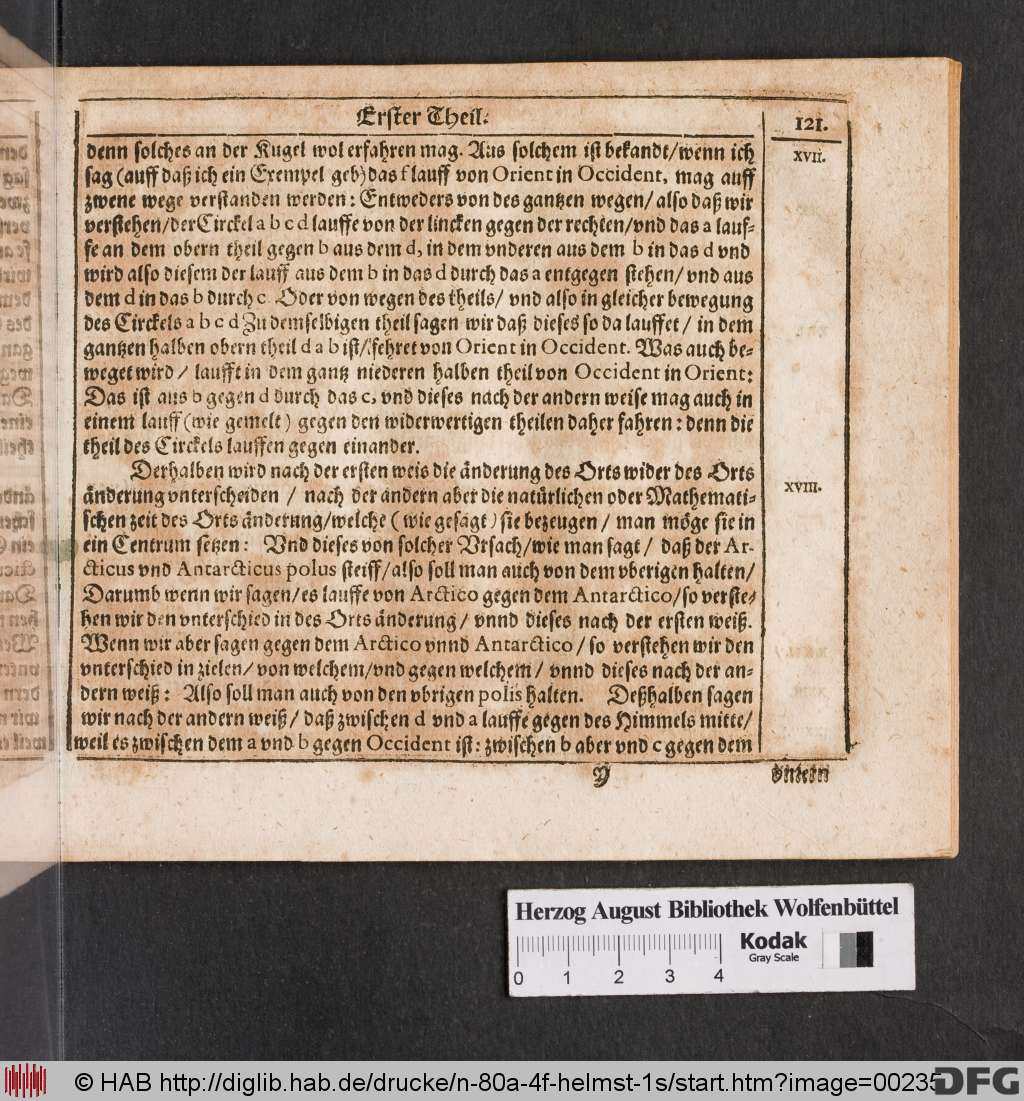 Erster Theil.
121.
denn solches an der Kugel wol erfahren mag. Aus solchem ist bekandt/wenn ich
XVII.
sag (auff daß ich ein Exempel geb) das f lauff von Orient in Occident, mag auff
zwene wege verstanden werden: Entweders von des gantzen wegen/ also daß wir
verstehen/der Circkel a b c d lauffe von der lincken gegen der rechten/vnd das a lauf-
fe an dem obern theil gegen b aus dem d, in dem vnderen aus dem b in das d vnd
wird also diesem der lauff aus dem b in das d durch das a entgegen stehen/ vnd aus
dem d in das b durch c. Oder von wegen des theils/ vnd also in gleicher bewegung
des Circkels a b c d Zu demselbigen theil sagen wir daß dieses so da lauffet / in dem
gantzen halben obern theil d a b ist/ fehret von Orient in Occident. Was auch be-
weget wird/ laufft in dem gantz niederen halben theil von Occident in Orient:
Das ist aus b gegen d durch das c, vnd dieses nach der andern weise mag auch in
einem lauff (wie gemelt) gegen den widerwertigen theilen daher fahren: denn die
theil des Circkels lauffen gegen einander.
Derhalben wird nach der ersten weis die änderung des Orts wider des Orts
XVIII.
änderung vnterscheiden / nach der andern aber die natürlichen oder Mathemati-
schen zeit des Orts änderung/welche (wie gesagt) sie bezeugen/ man möge sie in
ein Centrum setzen: Vnd dieses von solcher Vrsach/wie man sagt/ daß der Ar-
cticus vnd Antarcticus polus steiff/also soll man auch von dem vberigen halten/
Darumb wenn wir sagen/es lauffe von Arctico gegen dem Antarctico/so verste-
hen wir den vnterschied in des Orts änderung/ vnnd dieses nach der ersten weiß.
Wenn wir aber sagen gegen dem Arctico vnnd Antarctico/ so verstehen wir den
vnterschied in zielen/ von welchem/vnd gegen welchem/ vnnd dieses nach der an-
dern weiß: Also soll man auch von den vbrigen polis halten. Deßhalben sagen
wir nach der andern weiß/ daß zwischen d vnd a lauffe gegen des Himmels mitte/
weil es zwischen dem a vnd b gegen Occident ist: zwischen b aber vnd c gegen dem
Herzog August Bibliothek Wolfenbüttel
Kodak
Gray Scale
0 1 2 3 4
© HAB http://diglib.hab.de/drucke/n-80a-4f-helmst-1s/start.htm?image=00235
DFG